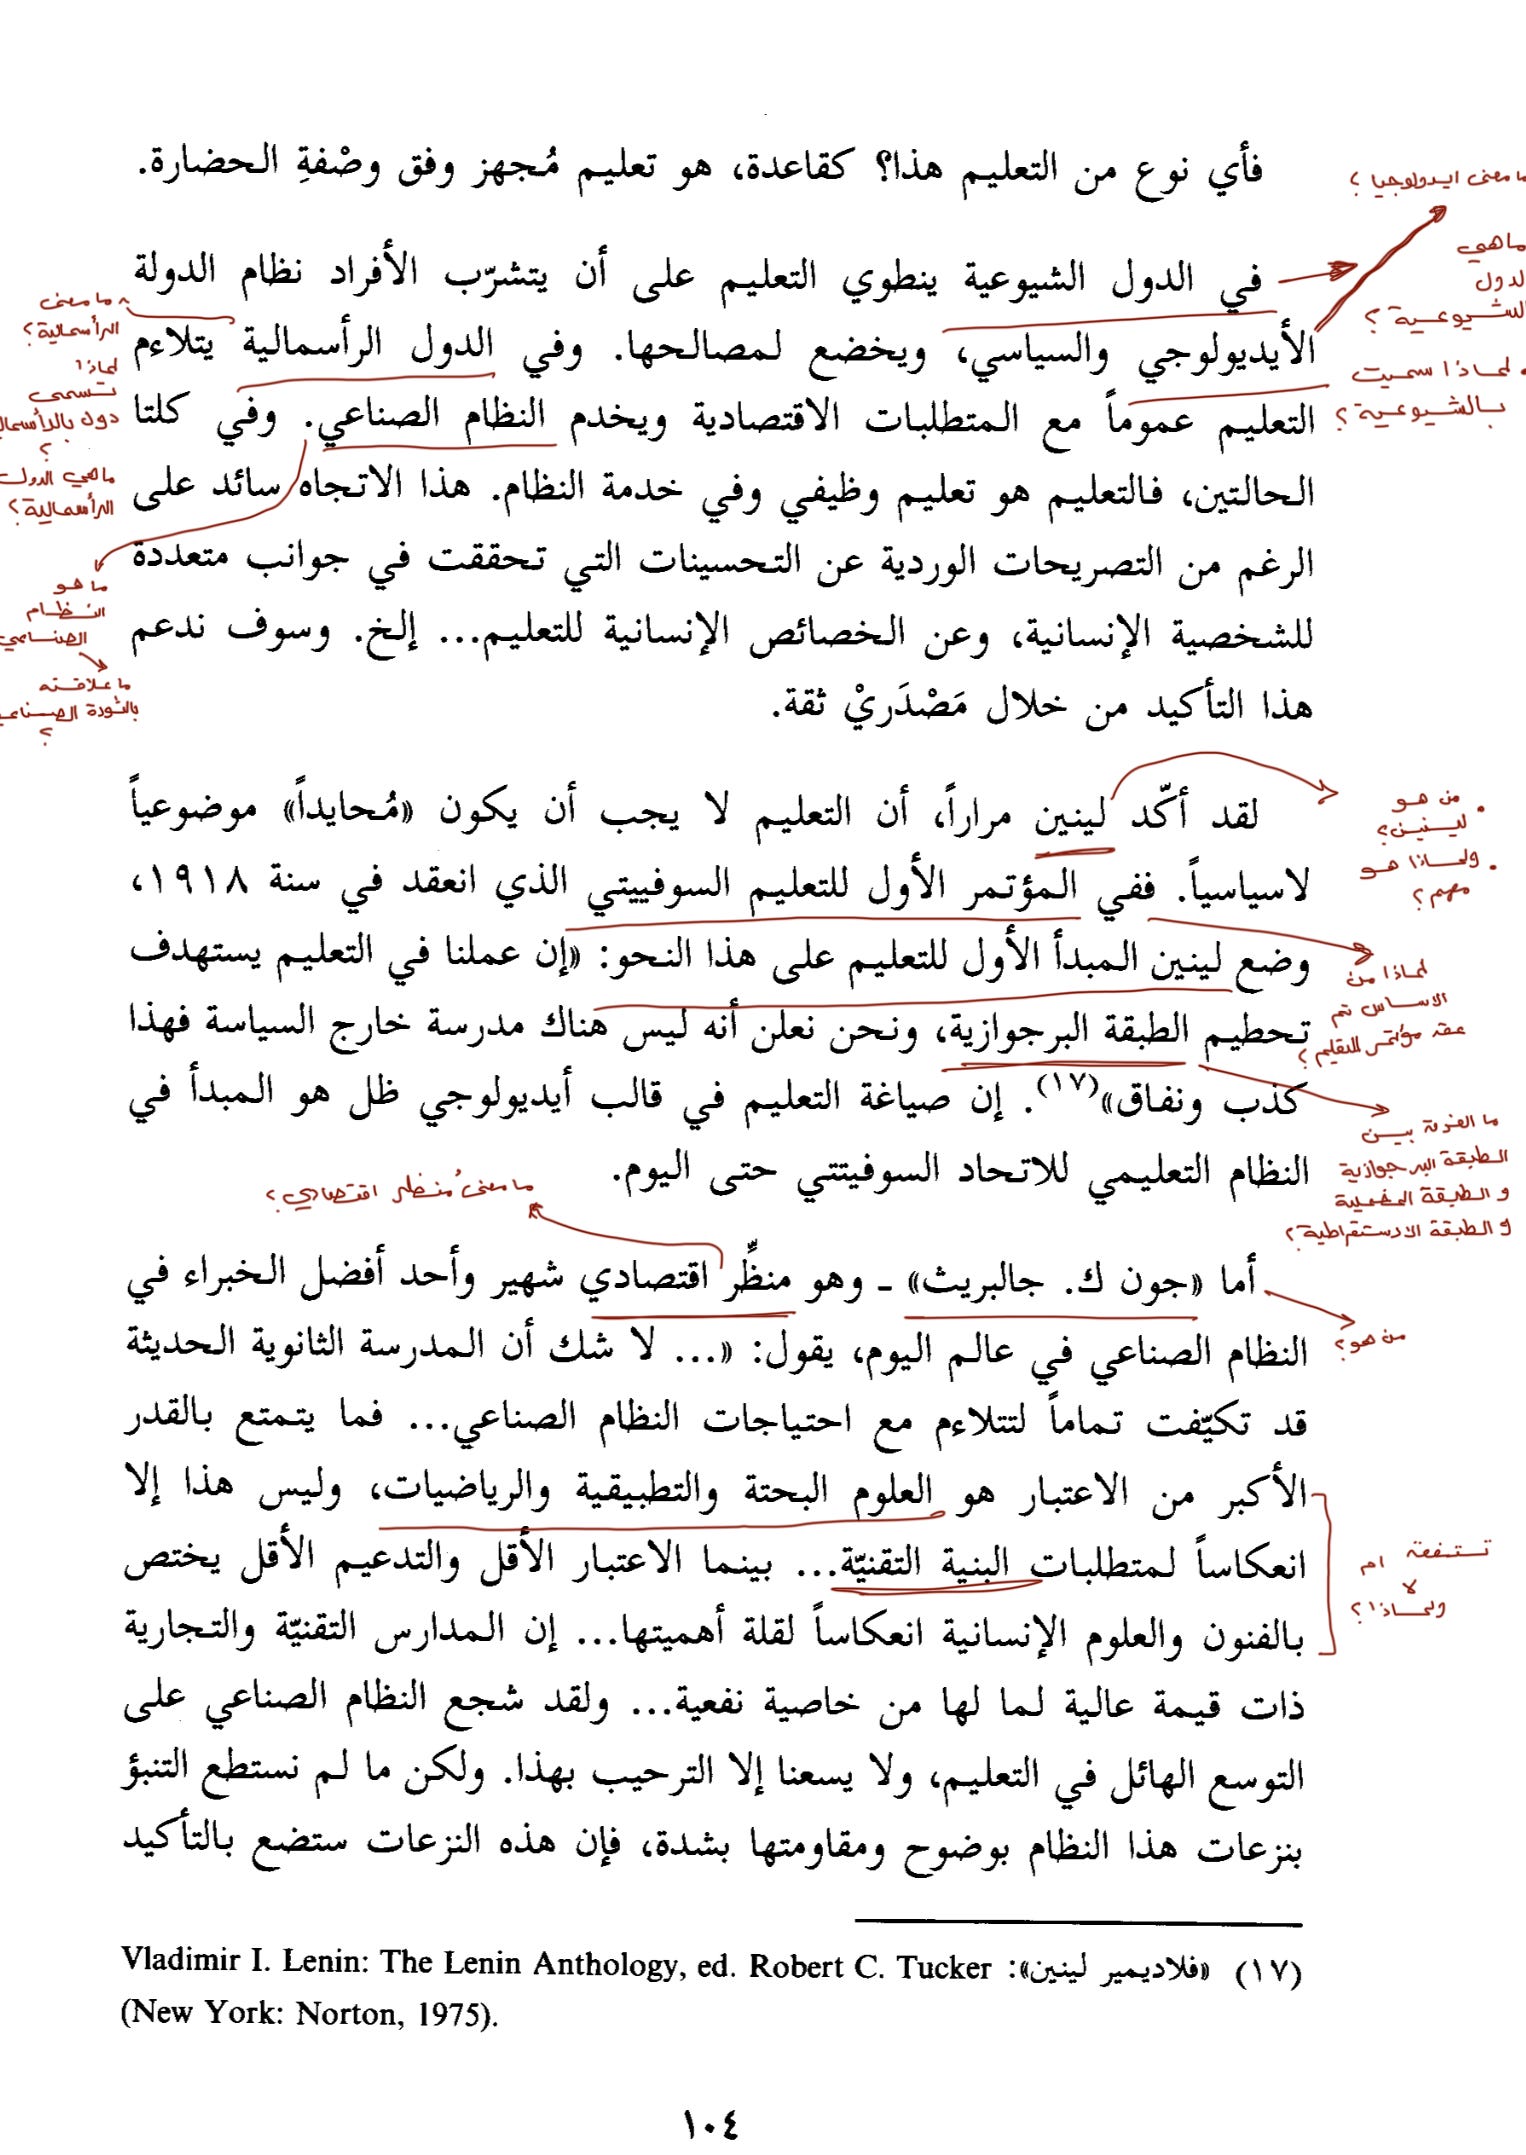 فأي نوع من التعليم هذا؟ كقاعدة، هو تعليم مُجهز وفق وصْفةِ الحضارة.
في الدول الشيوعية ينطوي التعليم على أن يتشرّب الأفراد نظام الدولة
الأيديولوجي والسياسي، ويخضع لمصالحها. وفي الدول الرأسمالية يتلاءم
التعليم عموماً مع المتطلبات الاقتصادية ويخدم النظام الصناعي. وفي كلتا
الحالتين، فالتعليم هو تعليم وظيفي وفي خدمة النظام. هذا الاتجاه سائد على
الرغم من التصريحات الوردية عن التحسينات التي تحققت في جوانب متعددة
للشخصية الإنسانية، وعن الخصائص الإنسانية للتعليم... إلخ. وسوف ندعم
هذا التأكيد من خلال مَصْدَريْ ثقة.
لقد أكّد لينين مراراً، أن التعليم لا يجب أن يكون «مُحايداً» موضوعياً
لاسياسياً. ففي المؤتمر الأول للتعليم السوفييتي الذي انعقد في سنة ١٩١٨،
وضع لينين المبدأ الأول للتعليم على هذا النحو: «إن عملنا في التعليم يستهدف
تحطيم الطبقة البرجوازية، ونحن نعلن أنه ليس هناك مدرسة خارج السياسة فهذا
كذب ونفاق»(١٧). إن صياغة التعليم في قالب أيديولوجي ظل هو المبدأ في
النظام التعليمي للاتحاد السوفيتتي حتى اليوم.
أما «جون ك. جالبريث» ـ وهو منظِّر اقتصادي شهير وأحد أفضل الخبراء في
النظام الصناعي في عالم اليوم، يقول: «... لا شك أن المدرسة الثانوية الحديثة
قد تكيّفت تماماً لتتلاءم مع احتياجات النظام الصناعي... فما يتمتع بالقدر
الأكبر من الاعتبار هو العلوم البحتة والتطبيقية والرياضيات، وليس هذا إلا
انعكاساً لمتطلبات البنية التقنيّة... بينما الاعتبار الأقل والتدعيم الأقل يختص
بالفنون والعلوم الإنسانية انعكاساً لقلة أهميتها... إن المدارس التقنيّة والتجارية
ذات قيمة عالية لما لها من خاصية نفعية... ولقد شجع النظام الصناعي على
التوسع الهائل في التعليم، ولا يسعنا إلا الترحيب بهذا. ولكن ما لم نستطع التنبؤ
بنزعات هذا النظام بوضوح ومقاومتها بشدة، فإن هذه النزعات ستضع بالتأكيد
(١٧) «فلاديمير لينين»: Vladimir I. Lenin: The Lenin Anthology, ed. Robert C. Tucker
(New York: Norton, 1975).
١٠٤
ما معنى ايدولوجيا؟
ماهي
الدول
الشيوعية؟
لماذا سميت
بالشيوعية؟
ما معنى
الرأسمالية؟
لماذا
تسمى
دول بالرأسمالية
؟
ماهي الدول
الرأسمالية؟
ما هو
النظام
الصناعي
ما علاقته
بالثورة الصناعية
؟
من هو
لينين؟
ولماذا هو
مهم؟
لماذا من
الاساس تم
عقد مؤتمر للتعليم؟
ما الفرق بين
الطبقة البرجوازية
و الطبقة المخملية
و الطبقة الارستقراطية؟
ما معنى مُنظر اقتصادي؟
من هو؟
تتفق ام
لا
ولماذا؟